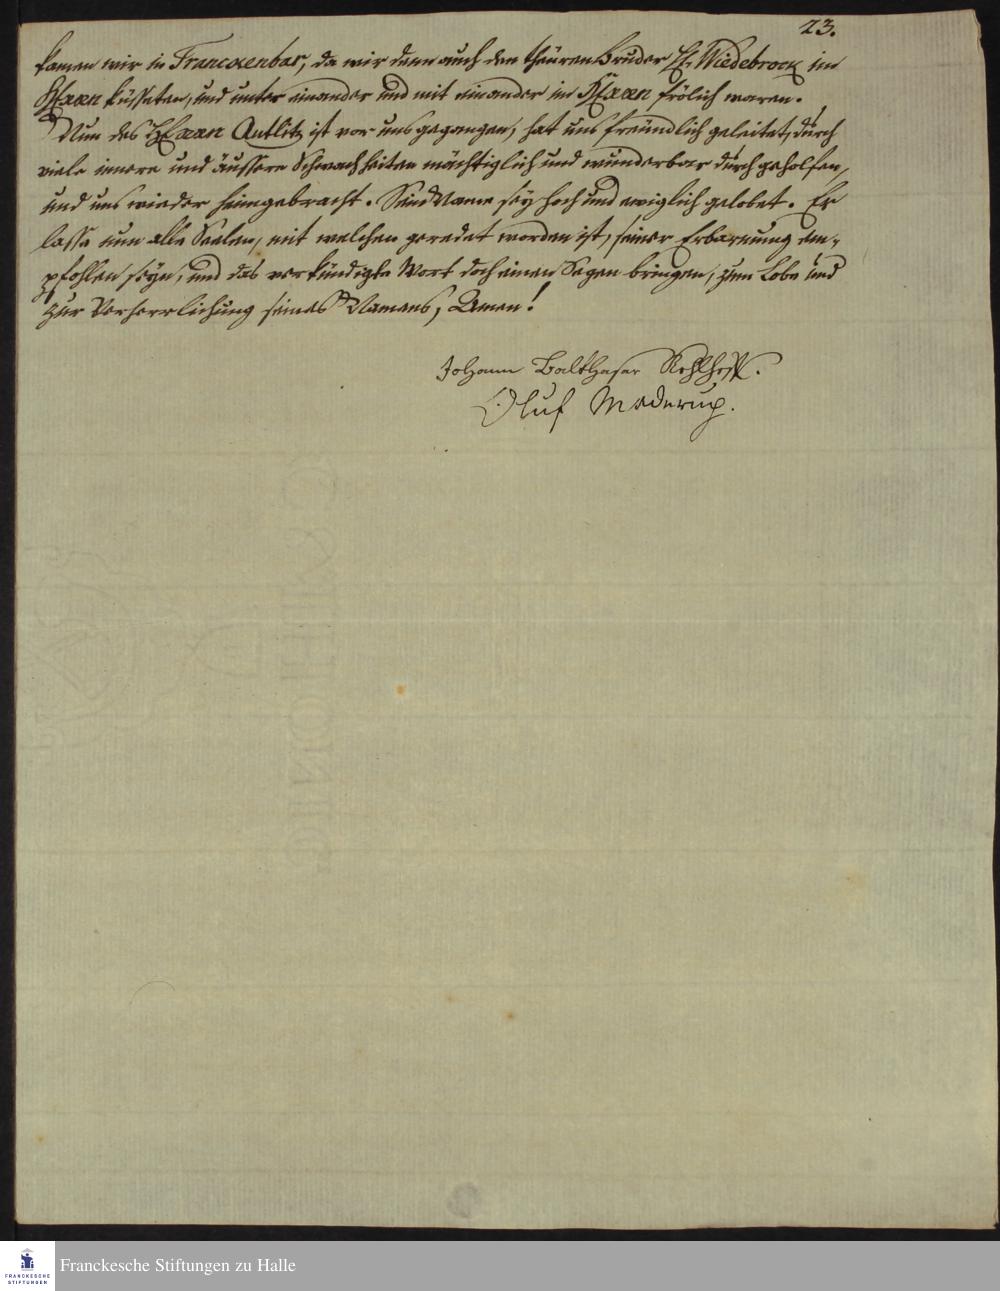 23.
kamen wir in Trancqenbar, da wir denn auch den theüren Bruder H. Wiedebrock im
HErrn küsseten, und unter einander und mit einander in HErrn frölich waren.
Nun des HErrn Antlitz ist vor uns gegangen, hat uns freündlich geleitet, durch
viele innere und äussere Schwachheiten mächtiglich und wunderbar durchgeholfen,
und uns wieder heimgebracht. Sein Name sey hoch und ewiglich gelobet. Er
lasse nun alle Seelen, mit welchen geredet worden ist, seiner Erbarmung em-
pfohlen seyn, und das verkündigte Wort doch einen Segen bringen, zum Lobe und
zur Verherrlichung seines Namens, Amen!
Johann Balthasar Kohlhoff.
Oluf Maderup.
Franckesche Stiftungen zu Halle
FRANCKESCHE
STIFTUNGEN